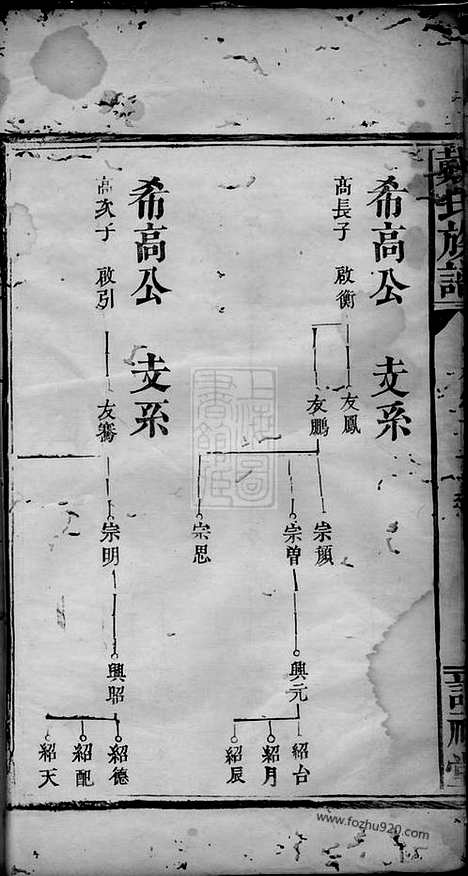 族譜
希高公 支系
高長子 啟衡
友鳳
友鵬
崇顏
崇曾
崇思
興元
紹台
紹月
紹辰
希高公 支系
高次子 啟引
友騫
崇明
興昭
紹德
紹配
紹天
www.fozhu920.com